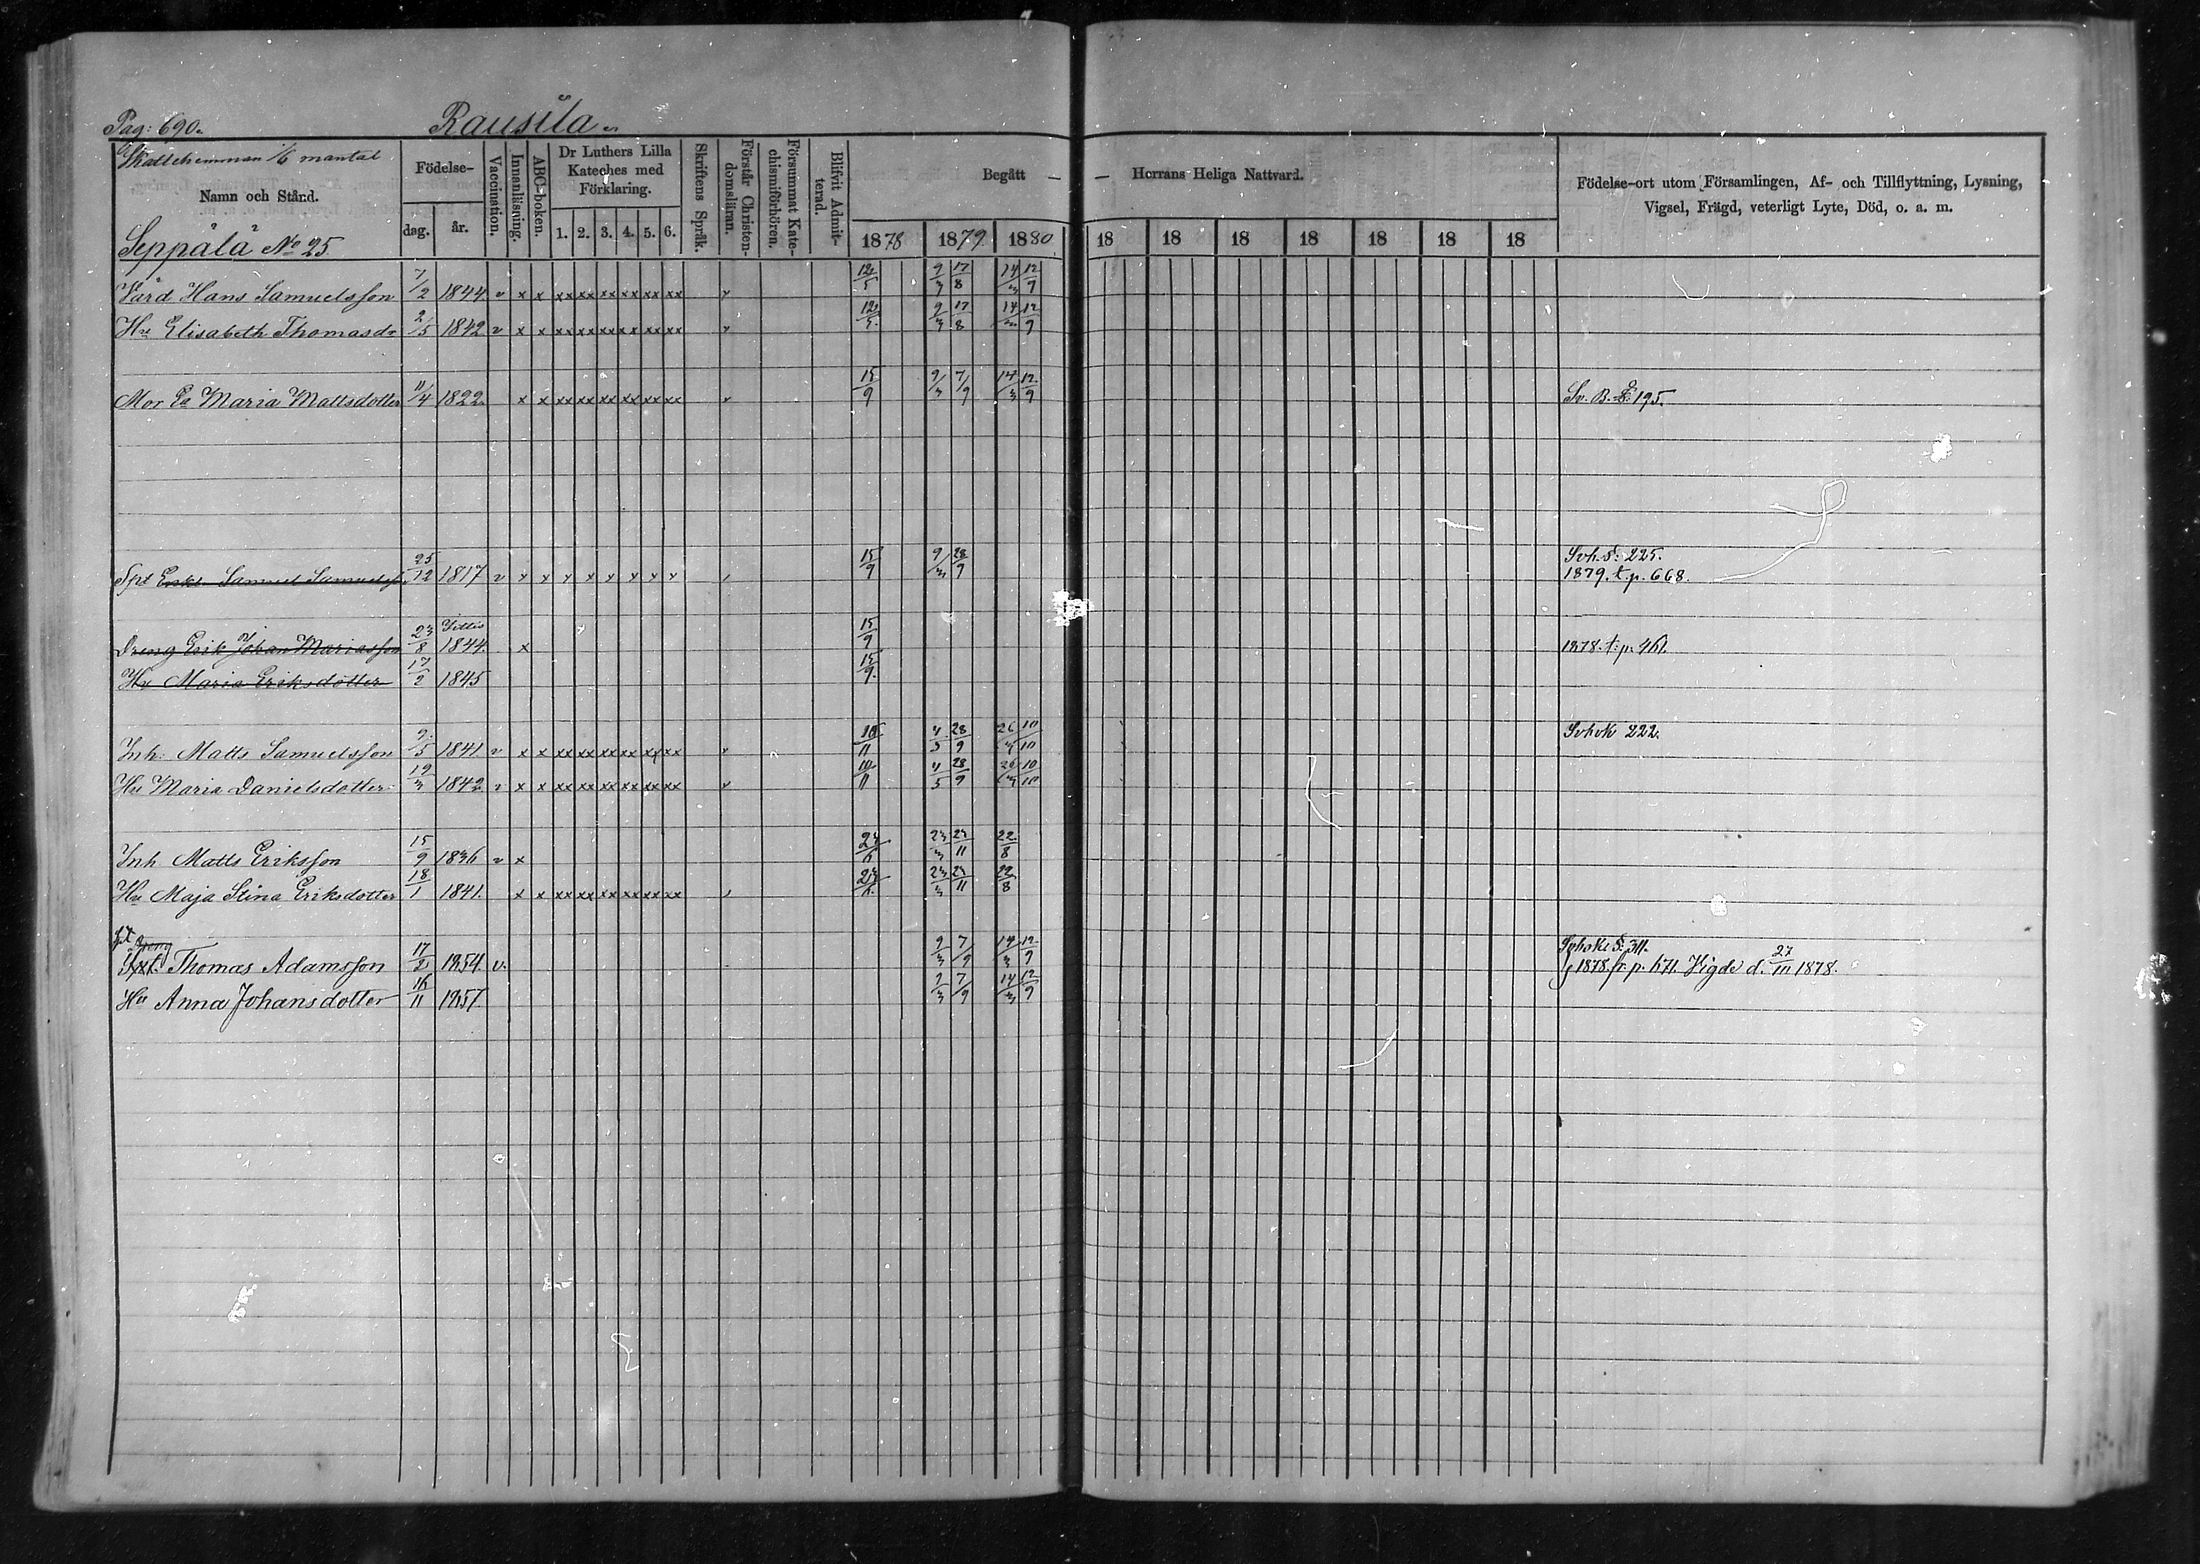 Pag: 690. Rausila
Skattehemman 1/6 mantal
Namn och Stånd.
Seppälä No 25.
Födelse-
dag. år.
Vaccination.
Innanläsning.
ABC-boken.
Dr Luthers Lilla
Kateches med
Förklaring.
1. 2. 3. 4. 5. 6.
Skriftens Språk.
Förstår Christen-
domsläran.
Försummat Kate-
chismiförhören.
Blifvit Admit-
terad.
Begått — — Herrans Heliga Nattvard.
1878 1879 1880 18 18 18 18 18 18 18
Födelse-ort utom Församlingen, Af- och Tillflyttning, Lysning,
Vigsel, Frägd, veterligt Lyte, Död, o. a. m.
Hans Samuelsson 7/2 1844. v x x xx xx xx xx xx xx 12/5 9/3 17/8 14/3 12/9
Hu Elisabeth Thomasdr 2/5 1842 v x x xx xx xx xx xx xx 12/5 9/3 17/8 14/3 12/9
Mor Ea Maria Mattsdotter 11/4 1822. x x xx xx xx xx xx xx 15/9 9/3 7/9 14/3 12/9 195.
Samuel Samuelss 25/12 1817 v x x x x x x x x 15/9 9/3 28/9 Svh. S: 225.
1879. t. p. 668.
Dreng Erik Johan Mariasson 23/8 1844. x 15/9 1878. t. p. 461.
Hu Maria Eriksdotter 17/2 1845 15/9
Inh. Matts Samuelsson 9/5 1841. v x x xx xx xx xx xx xx 10/11 4/5 28/9 26/3 10/10 222.
Hu Maria Danielsdotter 19/3 1842 v x x xx xx xx xx xx xx 10/11 4/5 28/9 26/3 10/10
Inh Matts Eriksson 15/9 1836 v x 23/3 23/11 22/8
Hu Maja Stina Eriksdotter 18/1 1841. x x xx xx xx xx xx xx 23/3 23/11 22/8
Dreng
Thomas Adamsson 17/2 1854. v. 9/3 7/9 14/3 12/9 S: 311.
1878. fr. p. Vigde d. 27/III 1878.
Hu Anna Johansdotter 16/11 1857. 7/9 14/3 12/9